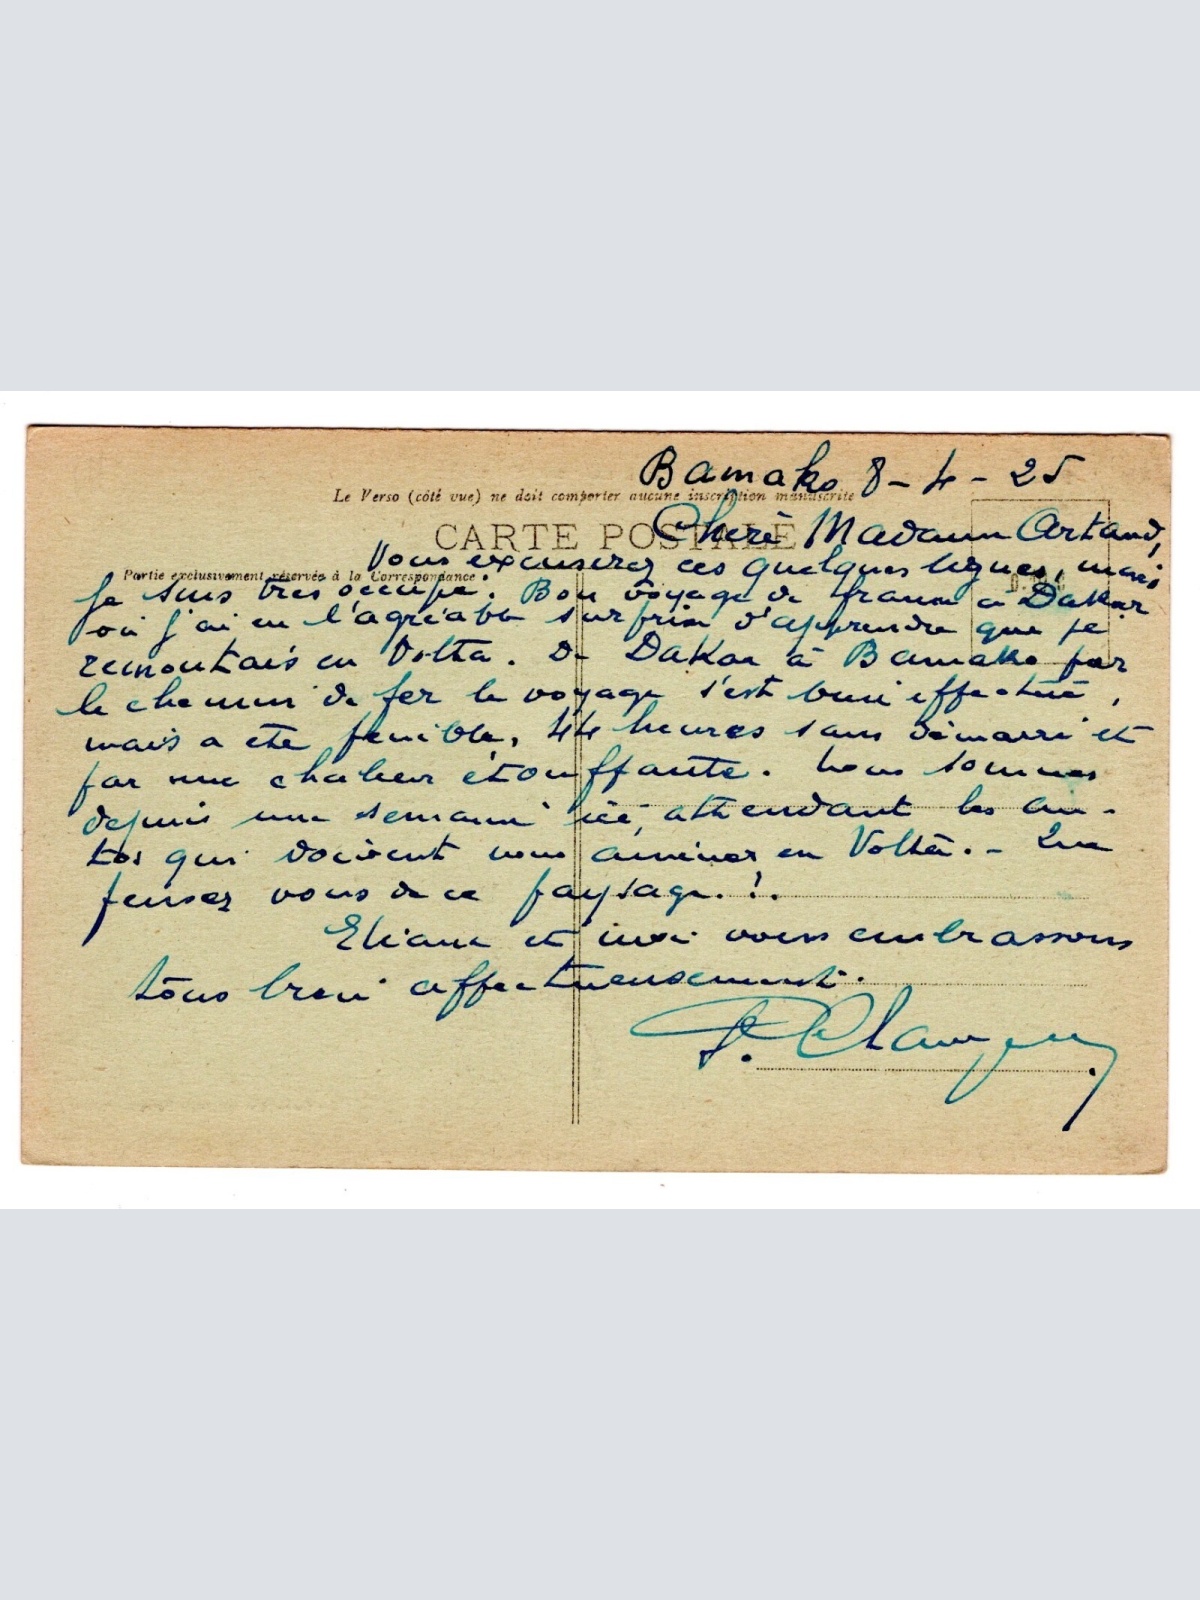 Bamako 8-4-25
Le Verso (côté vue) ne doit comporter aucune inscription manuscrite
CARTE POSTALE
Chère Madame Artaud,
Vous excuserez ces quelques lignes, mais
Partie exclusivement réservée à la Correspondance.
je suis très occupé. Bon voyage de france à Dakar
où j'ai eu l'agréable surprise d'apprendre que je
remontais en Volta. De Dakar à Bamako par
le chemin de fer le voyage s'est bien effectué,
mais a été penible, 44 heures sans démarré et
par une chaleur étouffante. Nous sommes
depuis une semaine ici, attendant les au-
tos qui doivent nous amener en Volta. - Que
pensez vous de ce paysage. !.
Eliane et moi vous embrassons
tous bien affectueusement.
P.